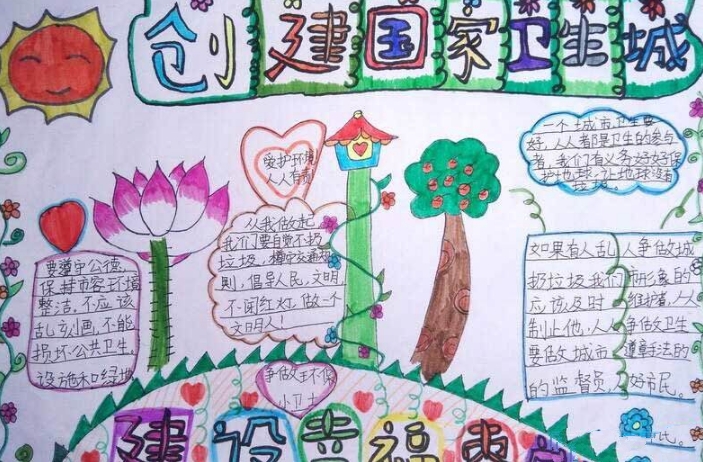 创建国家卫生城
爱护环境
人人有责
一个城市卫生要
好,人人都是卫生的参与
者,我们有义务好好保
护地球,让地球没有
垃圾。
从我做起
我们要自觉不扔
垃圾,遵守交通规
则,倡导人民,文明,
不闯红灯,做一个
文明人!
要遵守公德,
保持市容环境
整洁,不应该
乱写乱画,不能
损坏公共卫生
设施和绿地
如果有人乱
扔垃圾我们
应该及时
制止他,人人
要做城市
的监督员
人争做城
市形象的
维护者,人人
争做卫生
遵章守法的
好市民。
争做环保
小卫士
建设幸福